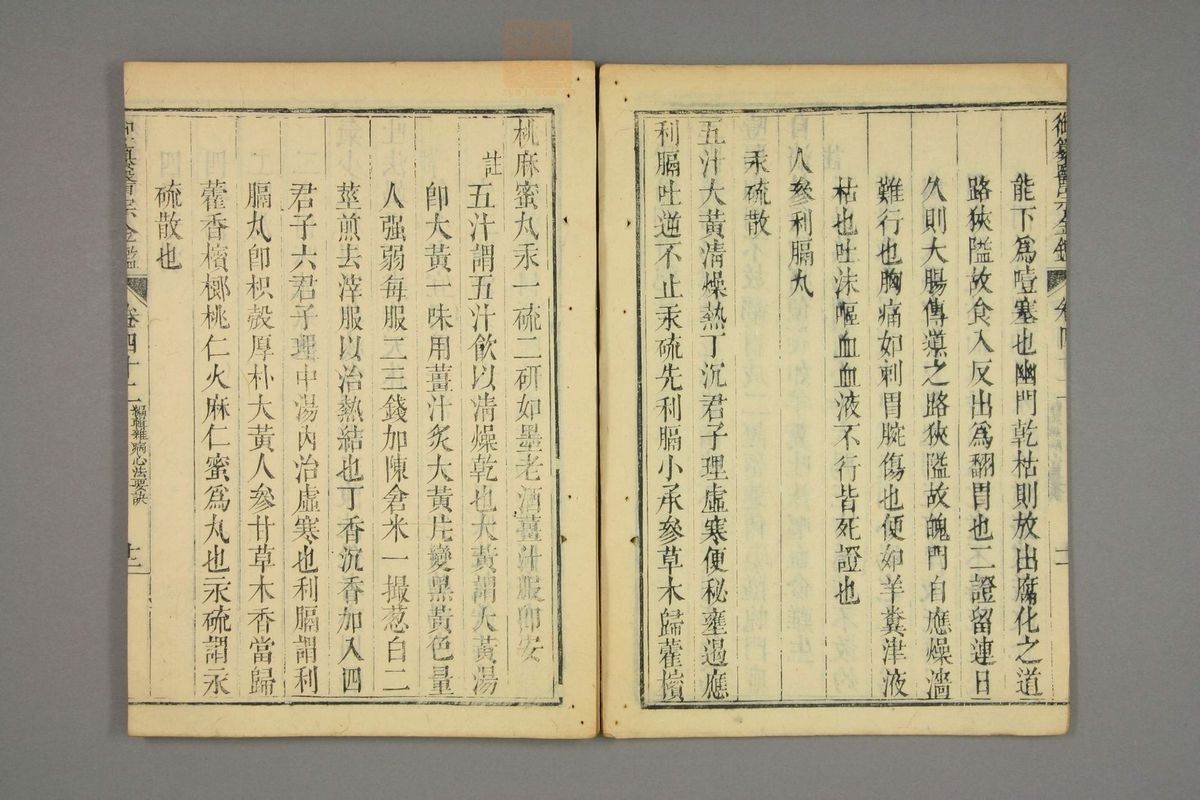 御纂醫宗金鑑
能下爲噎塞也幽門乾枯則放出腐化之道
路狹隘故食入反出爲翻胃也二證留連日
久則大腸傳導之路狹隘故魄門自應燥濇
難行也胸痛如刺胃脘傷也便如羊糞津液
枯也吐沫嘔血血液不行皆死證也
人參利膈丸
汞硫散
五汁大黃清燥熱丁沉君子理虛寒便秘壅遏應
利膈吐逆不止汞硫先利膈小承參草木歸藿檳
桃麻蜜丸汞一硫二研如墨老酒薑汁服卽安
註
五汁謂五汁飲以清燥乾也大黃謂大黃湯
卽大黃一味用薑汁炙大黃片變黑黃色量
人强弱每服二三錢加陳倉米一撮葱白二
莖煎去滓服以治熱結也丁香沉香加入四
君子六君子理中湯內治虛寒也利膈謂利
膈丸卽枳殼厚朴大黃人參甘草木香當歸
藿香檳榔桃仁火麻仁蜜爲丸也汞硫謂汞
硫散也
御纂醫宗金鑑
卷四十二
編輯雜病心法要訣